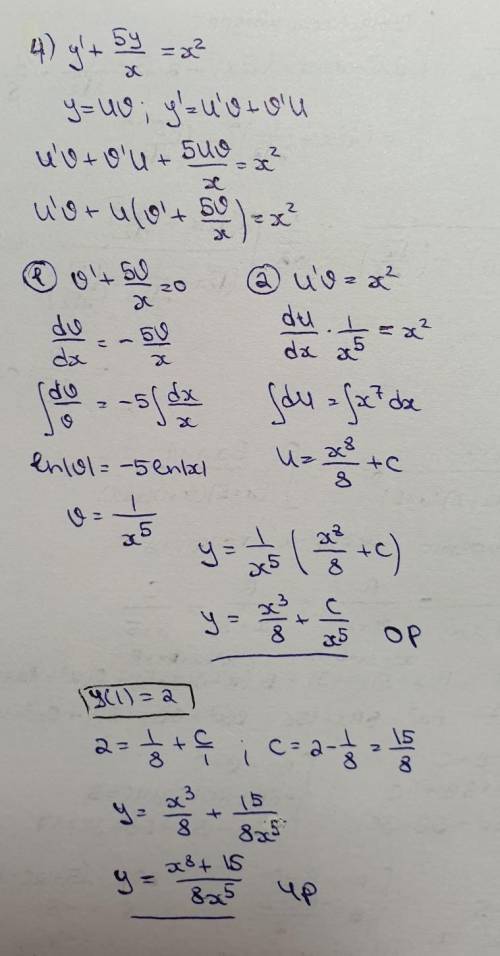 4) y' + 5y/x = x²
y = uv; y' = u'v + v'u
u'v + v'u + 5uv/x = x²
u'v + u(v' + 5v/x) = x²
① v' + 5v/x = 0
dv/dx = -5v/x
∫dv/v = -5∫dx/x
ln|v| = -5ln|x|
v = 1/x⁵
② u'v = x²
du/dx · 1/x⁵ = x²
∫du = ∫x⁷dx
u = x⁸/8 + c
y = 1/x⁵ (x²/8 + c)
y = x³/8 + c/x⁵ ОР
y(1) = 2
2 = 1/8 + c/1 ; c = 2 - 1/8 = 15/8
y = x³/8 + 15/8x⁵
y = x⁸ + 15/8x⁵ ЧР